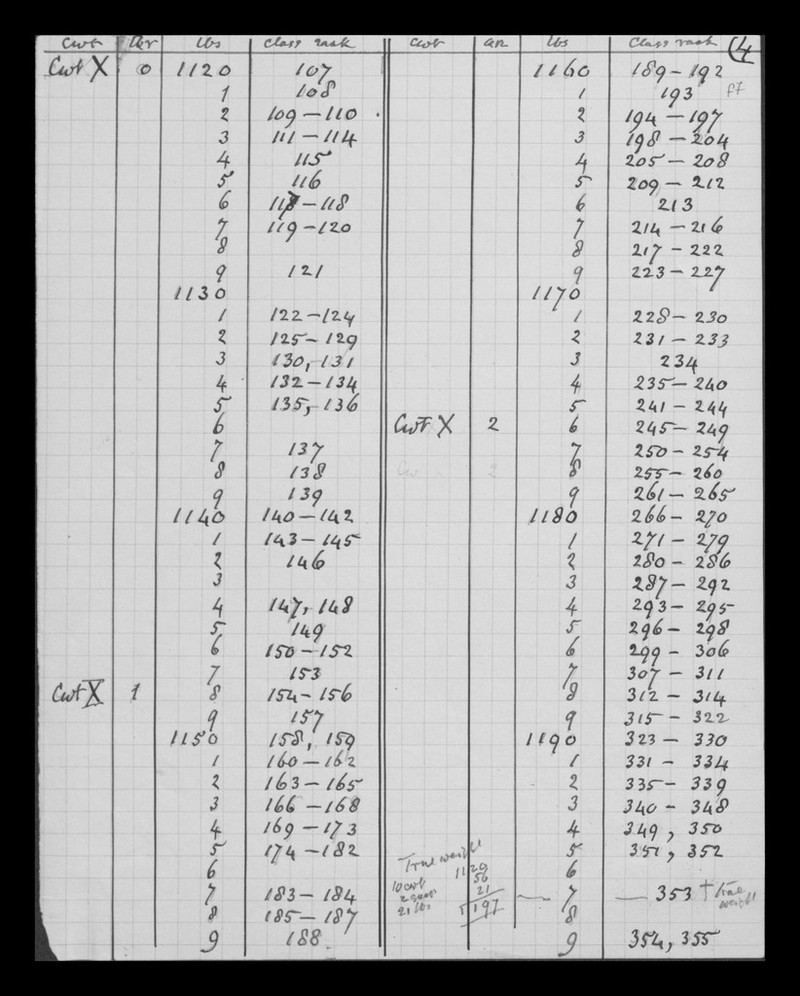 Cwt qr lbs Class rank Cwt qr lbs Class rank (4
Cwt X 0 1120 107 1160 189-192
1 108 1 193
2 109-110 2 194-197
3 111-114 3 198-204
4 115 4 205-208
5 116 5 209-212
6 117-118 6 213
7 119-120 7 214-216
8 8 217-222
9 121 9 223-227
1130 1170
1 122-124 1 228-230
2 125-129 2 231-233
3 130, 131 3 234
4 132-134 4 235-240
5 135, 136 5 241-244
6 Cwt X 2 6 245-249
7 137 7 250-254
8 138 8 255-260
9 139 9 261-265
1140 140-142 1180 266-270
1 143-145 1 271-279
2 146 2 280-286
3 3 287-292
4 147, 148 4 293-295
5 149 5 296-298
6 150-152 6 299-306
7 153 7 307-311
Cwt X 1 8 154-156 8 312-314
9 157 9 315-322
1150 158, 159 1190 323-330
1 160-162 1 331-334
2 163-165 2 335-339
3 166-168 3 340-348
4 169-173 4 349, 350
5 174-182 True weight 5 351, 352
6 1120 6
7 183-184 10 cwt 56 7 353 † True weight
8 185-187 21 lbs 21 8
1197
9 188 9 354, 355